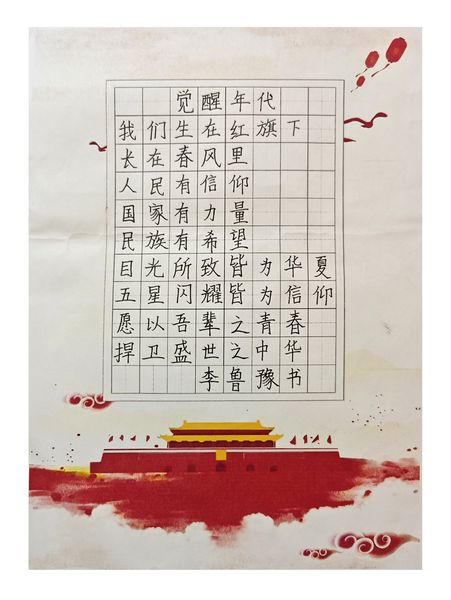 觉醒年代
我们生在红旗下
长在春风里
人民有信仰
国家有力量
民族有希望
目光所致皆为华夏
五星闪耀皆为信仰
愿以吾辈之青春
捍卫盛世之中华
李鲁豫书